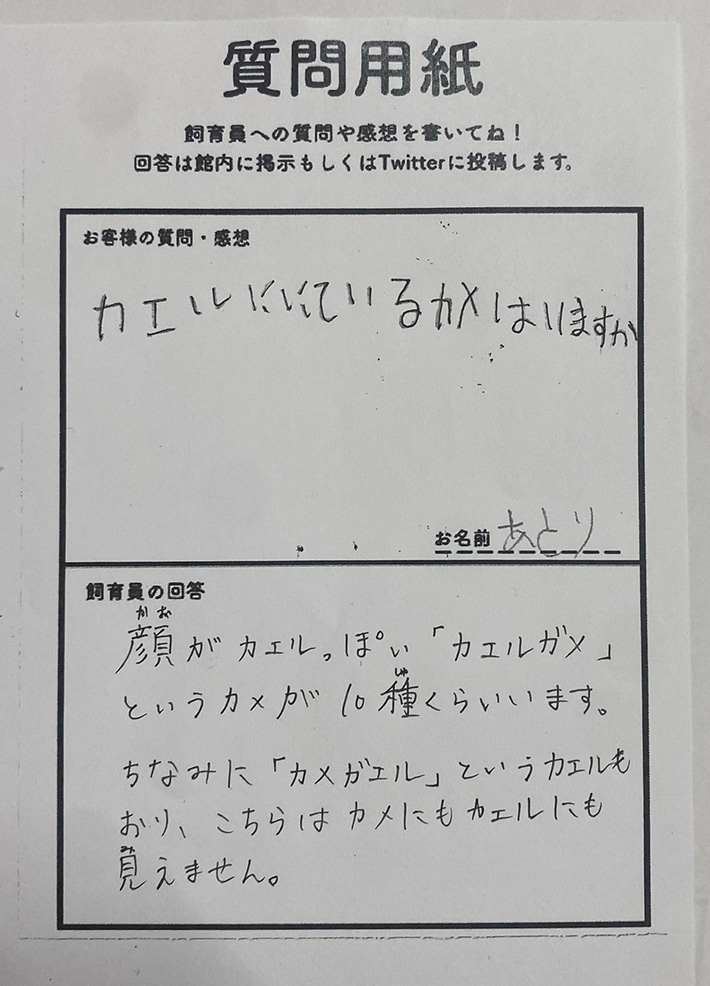 質問用紙
飼育員への質問や感想を書いてね！
回答は館内に掲示もしくはTwitterに投稿します。
お客様の質問・感想
カエルににているカメはいますか
お名前 あとり
飼育員の回答
顔がカエルっぽい「カエルガメ」
かお
というカメが10種くらいいます。
しゅ
ちなみに「カメガエル」というカエルも
おり、こちらはカメにもカエルにも
見えません。
み